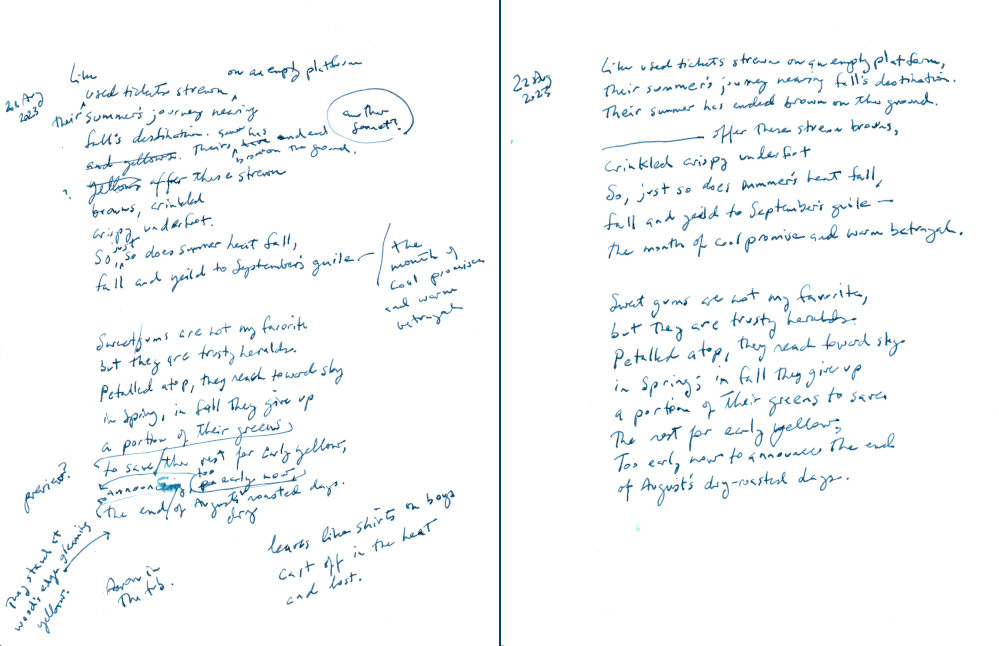 Like on an empty platform
used tickets strewn
Aug
2023
their summer's journey nearing
fall's destination. has ended
and yellows. Theirs, have brown on the ground.
another
sonnet?
? yellows offer these strewn
browns, crinkled
crispy underfoot.
So, just so does summer heat fall,
fall and yeild to September's guile—
the
month of
cool promises
and warm
betrayal
Sweetgums are not my favorite
but they are trusty heralds.
Petalled atop, they reach toward sky
in Spring, in fall they give up
a portion of their greens
to save the rest for early yellow,
too early now
the end of August's roasted days.
dry
preview?
They stand at
wood's edge gleaming
yellow.
in
the tub.
leaves like shirts on boys
cast off in the heat
and lost.
22 Aug
2023
Like used tickets strewn on an empty platform,
their summer's journey nearing fall's destination.
Their summer has ended brown on the ground.
offer these strewn browns,
crinkled crispy underfoot
So, just so does summer's heat fall,
fall and yeild to September's guile—
the month of cool promise and warm betrayal.
Sweet gums are not my favorite,
but they are trusty heralds.
Petalled atop, they reach toward sky
in Spring; in fall they give up
a portion of their greens to save
the rest for early yellow;
Too early now to announce the end
of August's dry-roasted days.